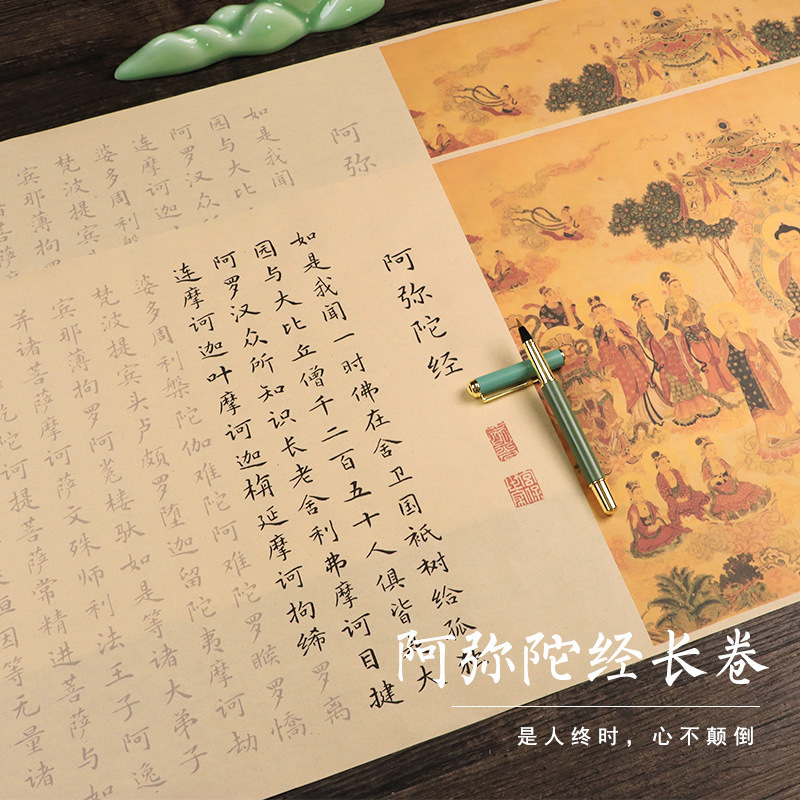 阿弥
如是我闻
园与大比
阿罗汉众
连摩诃迦
婆多周利
梵波提宾头
宾那薄拘
诸菩萨
阿弥陀经
如是我闻一时佛在舍卫国祇树给孤
园与大比丘僧千二百五十人俱皆是大
阿罗汉众所知识长老舍利弗摩诃目揵
连摩诃迦叶摩诃迦栴延摩诃拘𫄨罗离
婆多周利槃陀伽难陀阿难陀罗睺罗憍
梵波提宾头卢颇罗堕迦留陀夷摩诃劫
宾那薄拘罗阿㝹楼驮如是等诸大弟子
并诸菩萨摩诃萨文殊师利法王子阿逸
乾陀诃提菩萨常精进菩萨与如
桓因等无量诸
阿弥陀经长卷
是人终时，心不颠倒